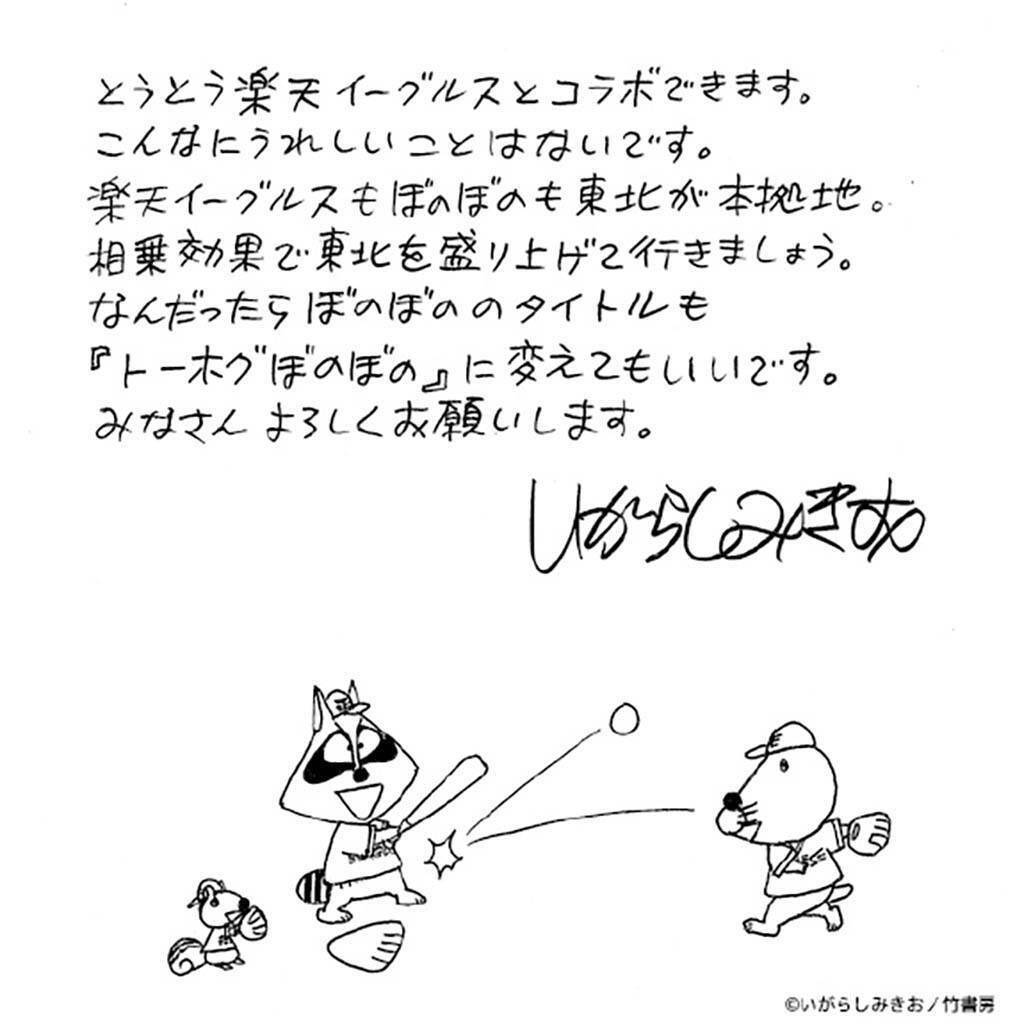 とうとう楽天イーグルスとコラボできます。
こんなにうれしいことはないです。
楽天イーグルスもぼのぼのも東北が本拠地。
相乗効果で東北を盛り上げて行きましょう。
なんだったらぼのぼののタイトルも
『トーホグぼのぼの』に変えてもいいです。
みなさんよろしくお願いします。
いがらしみきお
E
©いがらしみきお/竹書房